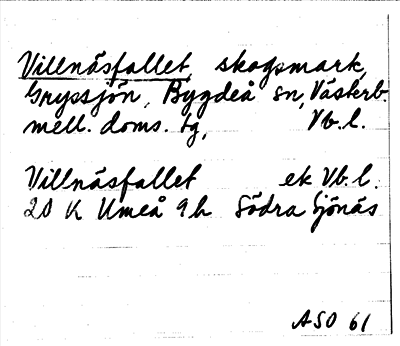 Villnäsfallet, skogsmark,
Gryssjön, Bygdeå sn, Västerb.
mell. doms. tg, Vb. l.
Villnäsfallet ek Vb. l.
20 K Umeå 9h Södra Sjönäs
ASO 61